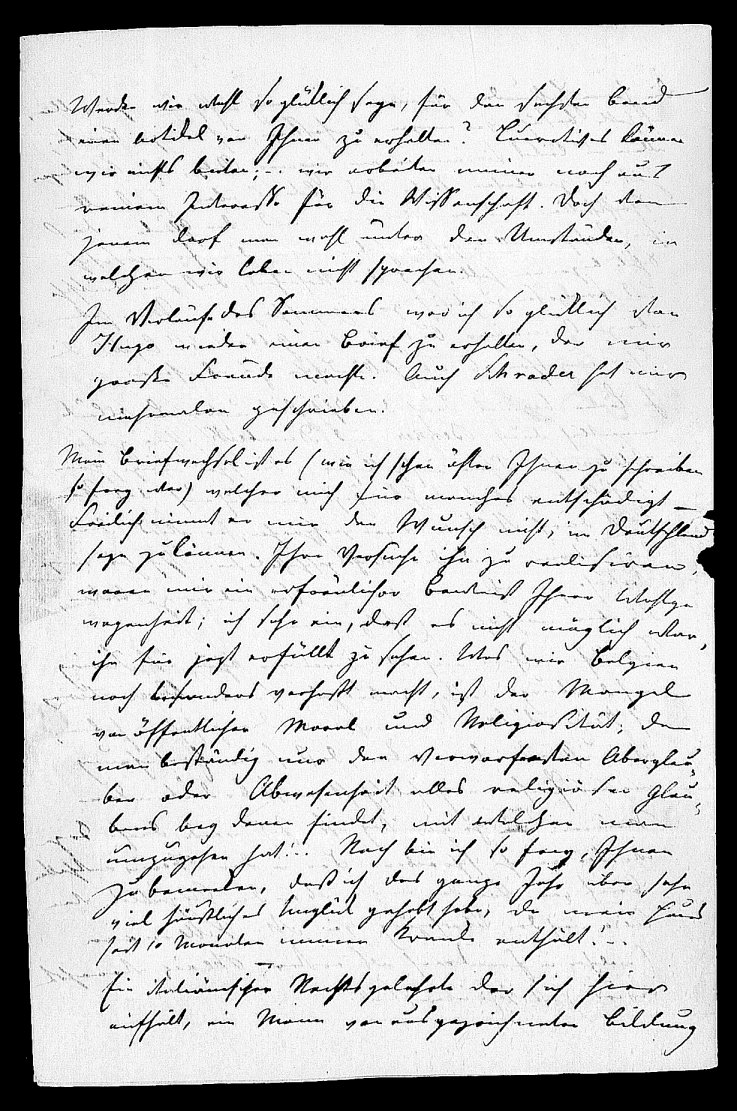 Werden wir wohl so glücklich seyn, für den sechsten Band
einen Artikel von Ihnen zu erhalten? Lucratives können
wir nichts bieten; – wir arbeiten immer noch aus
reinem Interesse für die Wissenschaft. Doch von
jenem darf man wohl unter den Umständen, in
welchen wir leben nicht sprechen.
Im Verlaufe des Sommers war ich so glücklich von
Hugo wieder einen Brief zu erhalten, der mir
große Freude machte. Auch Schrader hat mir
mehrmalen geschrieben.
Mein Briefwechsel ist es (wie ich schon öfter Ihnen zu schreiben
so frey war) welcher mich für manches entschädigt –
Freilich nimmt er mir den Wunsch nicht, in Deutschland
seyn zu können. Ihre Versuche ihn zu realisiren,
waren mir ein erfreulicher Beweis Ihrer Wohlge
wogenheit; ich sehe ein, daß es nicht möglich war,
ihn für jezt erfüllt zu sehen. Was mir Belgien
noch besonders verhaßt macht, ist der Mangel
von öffentlicher Moral und Religiosität, denn
man beständig nur den verworfensten Aberglau-
ben oder Abwesenheit alles religiösen Glau-
bens bey denen findet, mit welchen man
umzugehen hat!.. Noch bin ich so frey, Ihnen
zu bemerken, daß ich das ganze Jahr über sehr
viel häusliches Unglück gehabt habe, da mein Haus
seit 10 Monaten immer Kranke enthält!..
Ein italiänischer Rechtsgelehrte der sich hier
aufhält, ein Mann von ausgezeichneter Bildung